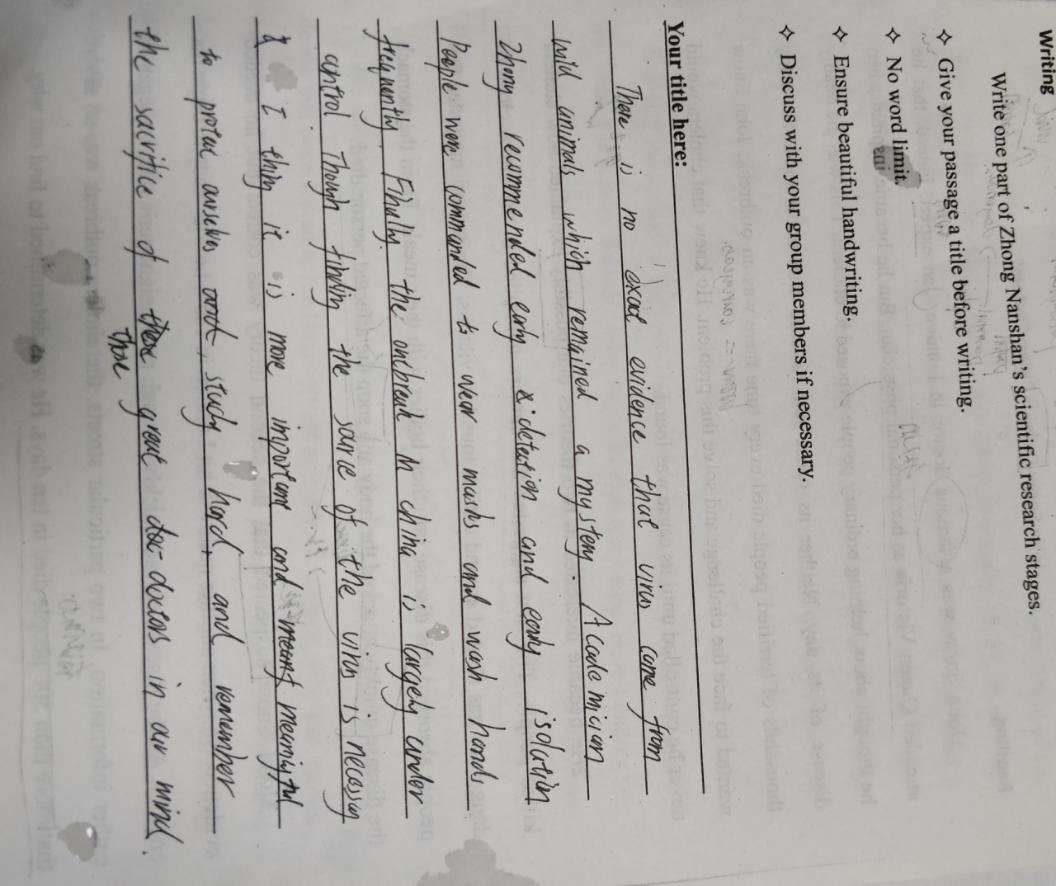 Writing
Write one part of Zhong Nanshan's scientific research stages.
✧ Give your passage a title before writing.
✧ No word limit.
✧ Ensure beautiful handwriting.
✧ Discuss with your group members if necessary.
Your title here:
There is no exact evidence that virus come from
wild animals which remained a mystery. Academician
Zhong recommended early detection and early isolation
People were commanded to wear masks and wash hands
frequently. Finally. the outbreak in china is largely under
control. Though finding the source of the virus is necessary
I thing it is more important and meaningful
to protect ourselves and study hard, and remember
the sacrifice of those great doctors in our mind.